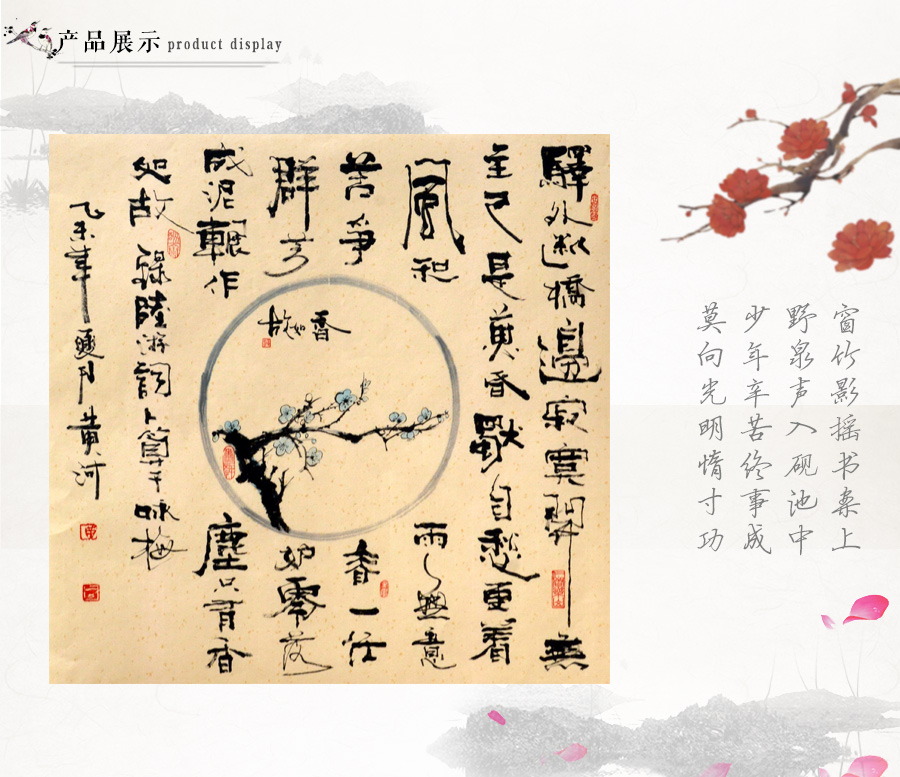 产品展示 product display
驛外斷橋邊寂寞開無
主已是黃昏獨自愁更著
風和雨無意
苦爭春一任
群芳妒零落
成泥輾作塵只有香
如故 錄陸游詞卜算子咏梅
乙未年夏月黃河
香如故
窗竹影摇书桌上
野泉声入砚池中
少年辛苦终事成
莫向光明惰寸功